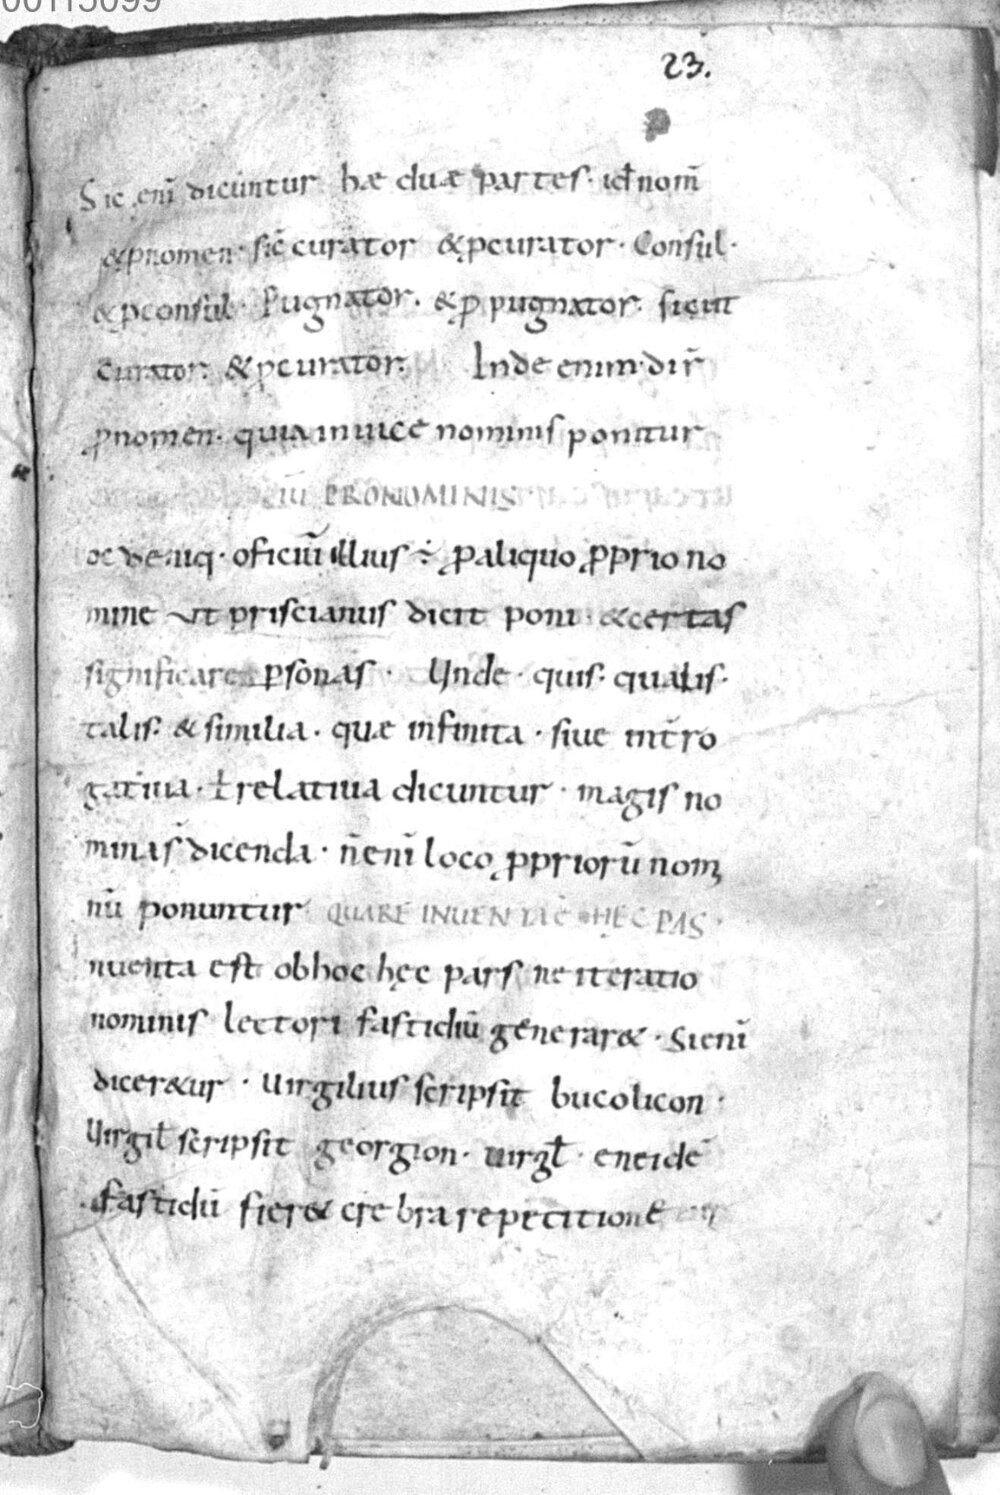 00115099
23.
Sic enī dicuntur hæ duæ partes· id nom̄
& ꝓnomen· sic̄ curator & ꝓcurator· Consul·
& ꝓconsul· Pugnator· & ꝓpugnator· sicut
curator· & ꝓcurator· Inde enim· dir̄
ꝓnomen· quia inuice nominis ponitur
PRONOMINIS
oc oficiū illius ÷ ꝓ aliquo ꝓprio no
mine ut priscianus dicit poni· & certas
significare ꝑsonas· Unde· quis· qualis·
talis· & similia· quæ infinita· siue int̄ro
gatiua· ł relatiua dicuntur· magis no
mina s̄ dicenda· n̄ enī loco ꝓpriorū nomi
nū ponuntur QUARE INUENTA Ē HĘC PAS·
nuenta est ob hoc hęc pars ne iteratio
nominis lectori fastidiū generar&· Si enī
dicer&ur· Uirgilius scripsit bucolicon·
Uirgiƚ scripsit georgion· uirgƚ· eneidē
fastidiū fier& crebra repetitione